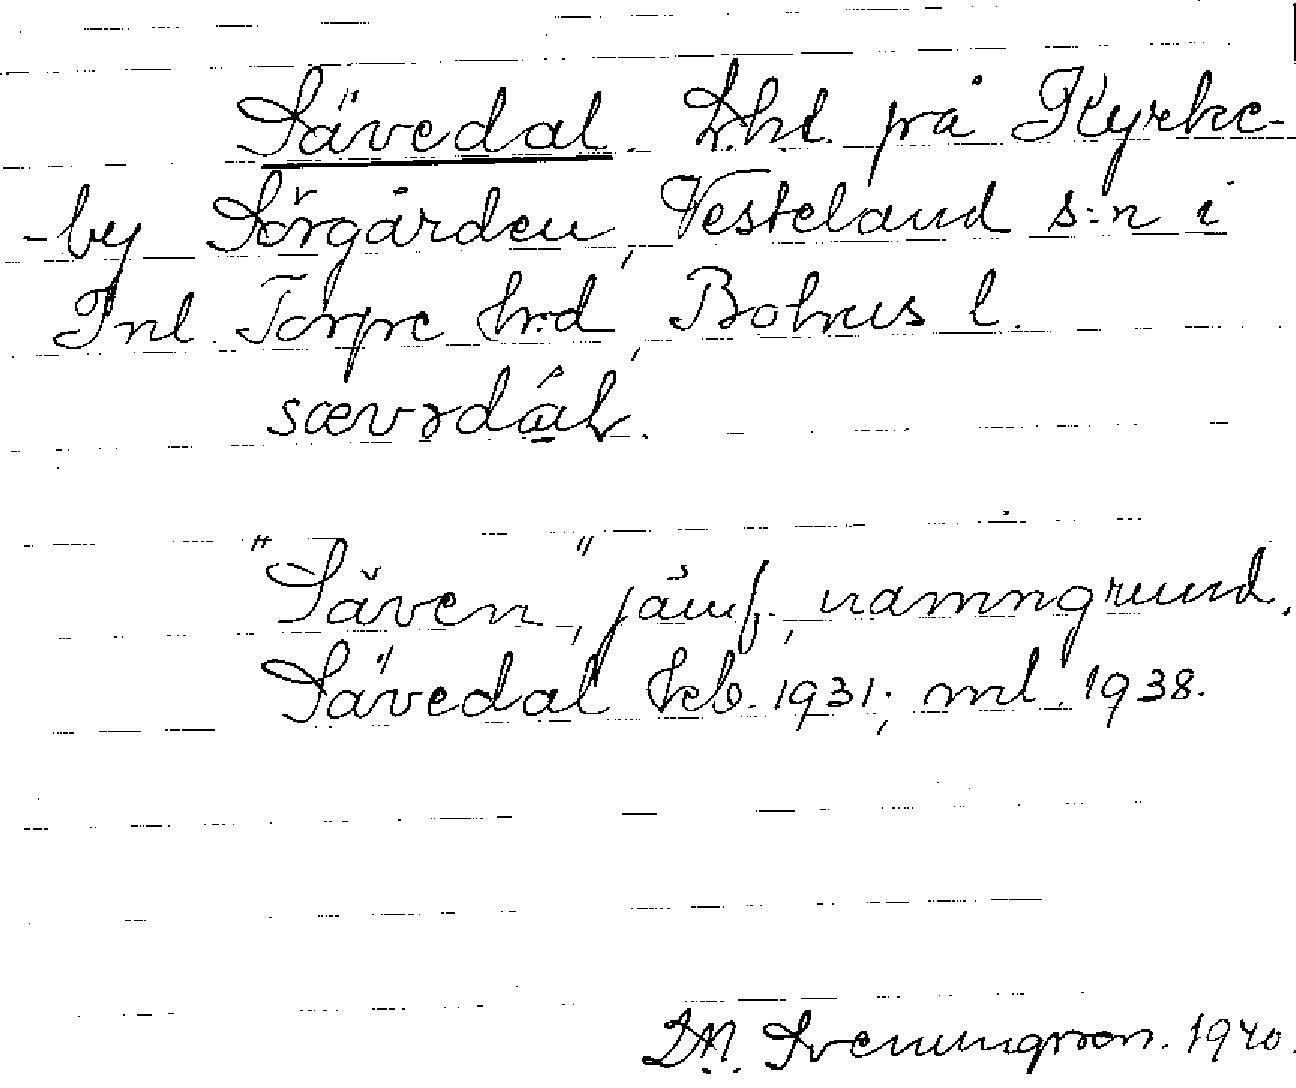 Sävedal. Lht. på Kyrke-
-by Sörgården, Vesteland s:n i
Inl. Torpe hrd, Bohus l.
sævədál.
"Säven", jämf., namngrund.
Sävedal kb. 1931; ml. 1938.
D.N. Svenungsson. 1940.